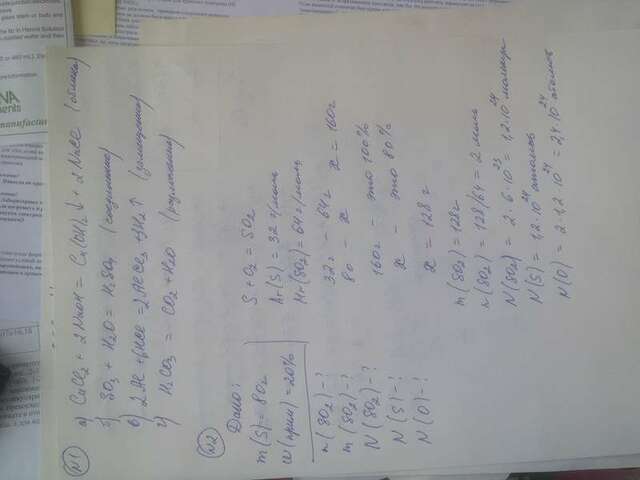 №1
а) CuCl₂ + 2NaOH = Cu(OH)₂↓ + 2NaCl (обмена)
б) SO₃ + H₂O = H₂SO₄ (соединения)
в) 2Al + 6HCl = 2AlCl₃ + 3H₂↑ (замещения)
г) H₂CO₃ = CO₂ + H₂O (разложения)
№2
Дано:
m(S) = 80г
w(прим) = 20%
n(SO₂) - ?
m(SO₂) - ?
N(SO₂) - ?
N(S) - ?
N(O) - ?
S + O₂ = SO₂
Ar(S) = 32 г/моль
Mr(SO₂) = 64 г/моль
32г - 64г
80 - x x = 160г
160г - это 100%
x - это 80%
x = 128 г
m(SO₂) = 128г
n(SO₂) = 128/64 = 2 моль
N(SO₂) = 2·6·10²³ = 1,2·10²⁴ молекул
N(S) = 1,2·10²⁴ атомов
N(O) = 2·1,2·10²⁴ = 2,4·10²⁴ атомов